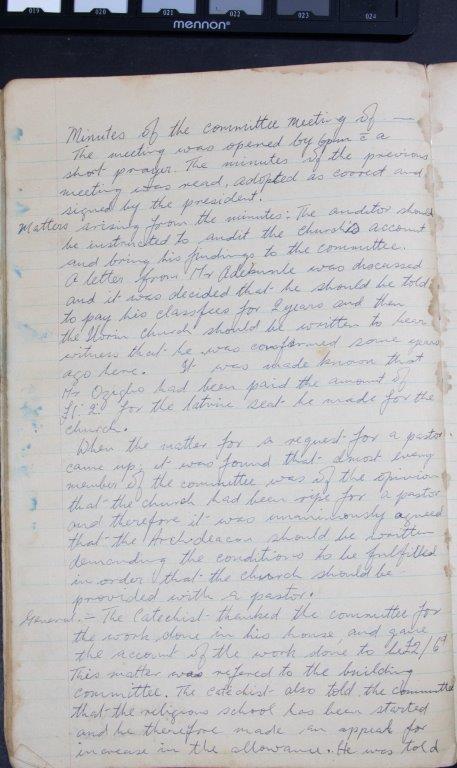 019 020 021 022 023 024
mennon
Minutes of the committee Meeting of —
The meeting was opened by 6pm c̄ a
short prayer. The minutes of the previous
meeting was read, adopted as correct and
signed by the president.
Matters arising from the minutes: The auditor should
be instructed to audit the church's account
and bring his findings to the committee.
A letter from Mr Adekunle was discussed
and it was decided that he should be told
to pay his classfees for 2 years and then
the Ilorin church should be written to bear
witness that he was confirmed some years
ago here. It was made known that
Mr Ozigbo had been paid the amount of
£1-2- for the latrine seat he made for the
church.
When the matter for a request for a pastor
came up, it was found that almost every
member of the committee was of the opinion
that the church had been ripe for a pastor
and therefore it was unanimously agreed
that the Archdeacon should be written
demanding the conditions to be fulfilled
in order that the church should be
provided with a pastor.
General :- The Catechist thanked the committee for
the work done in his house and gave
the account of the work done to be £2/6d
This matter was refered to the building
committee. The catechist also told the committee
that the religious school has been started
and he therefore made an appeal for
increase in the allowance. He was told